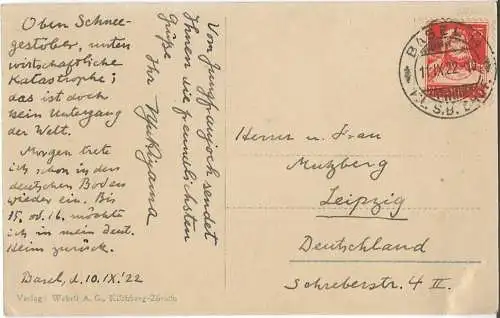 Oben Schnee-
gestöber, unten
wirtschaftliche
Katastrophe;
das ist doch
kein Untergang
der Welt.
Morgen trete
ich schon in den
deutschen Boden
wieder ein. Bis
15. od. 16. möchte
ich in mein deut.
Heim zurück.
Basel, d. 10. IX. '22
Vom Jungfraujoch sendet
Ihnen die freundlichsten
Grüße
Ihr
BASEL
11.IX.22
Herrn u. Frau
Mutzberg
Leipzig
Deutschland
Schreberstr. 4 II.
Verlag: Wehrli A. G., Kilchberg-Zürich